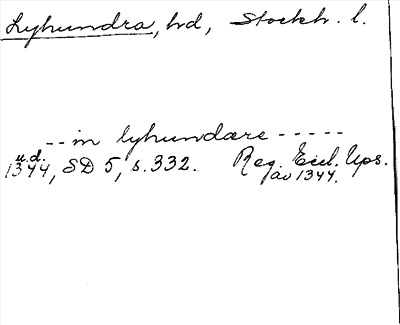 Lyhundra, hd, Stockh. l.
-- in lyhundare -----
u.d.
1344, SD 5, s. 332. Reg. Eccl. Ups.
av 1344.